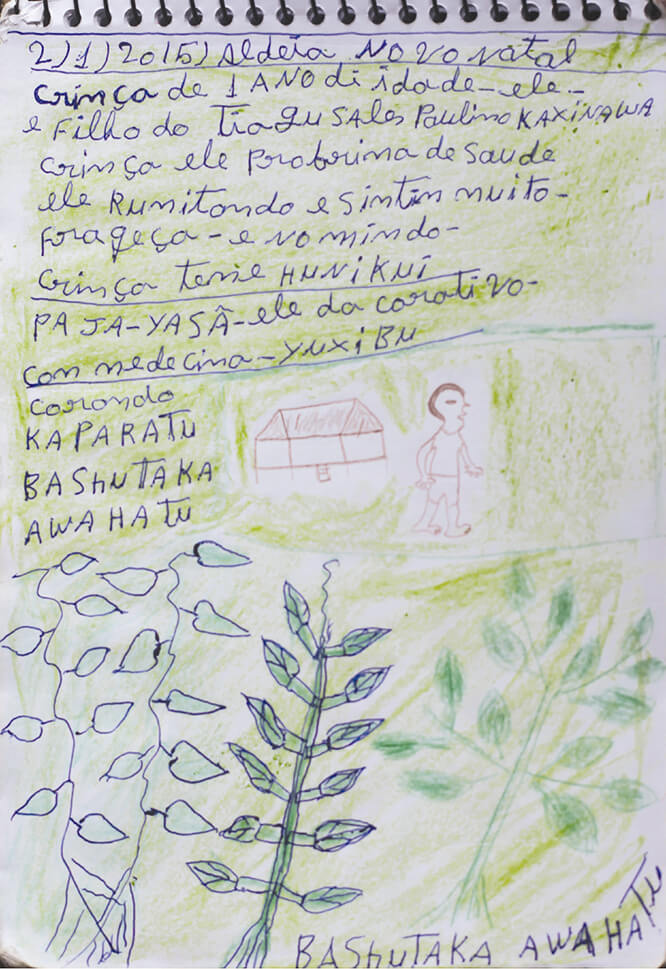 2)1)2015) Aldeia NOVO Natal
Crinça de 1 ANO di idade - ele -
e Filho do Tiagu SAles Paulino KAXINAWA
Crinça ele Probrima de Saude
ele Rumitondo e Sintin muito -
forageça - e NO mindo -
Crinça teme HUNIKUI
PAJA - YASÂ - ele da corativo -
Con medecina - YUXIBU
Corondo
KAPARATU
BASHUTAKA
AWAHATU
BASHUTAKA AWAHATU